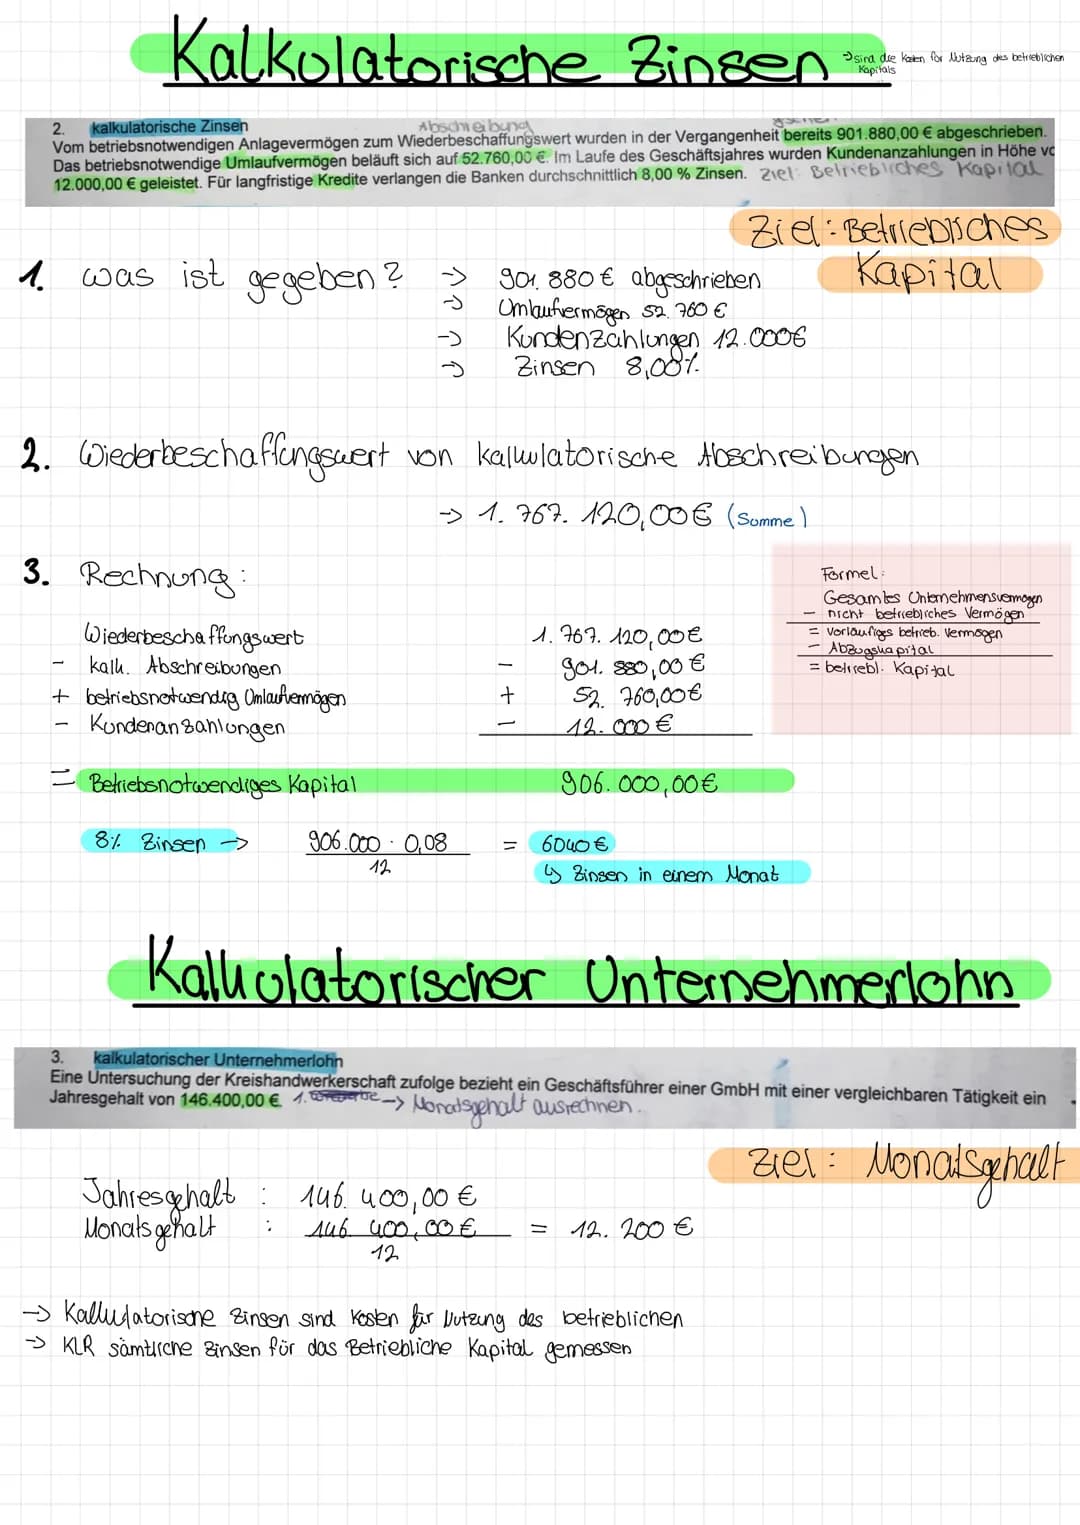 Kalkulatorische Zinsen
→ sind die Kosten für Nutzung des betrieblichen
Kapitals
Abschreibung
2. kalkulatorische Zinsen
Vom betriebsnotwendigen Anlagevermögen zum Wiederbeschaffungswert wurden in der Vergangenheit bereits 901.880,00 € abgeschrieben.
Das betriebsnotwendige Umlaufvermögen beläuft sich auf 52.760,00 €. Im Laufe des Geschäftsjahres wurden Kundenanzahlungen in Höhe vo
12.000,00 € geleistet. Für langfristige Kredite verlangen die Banken durchschnittlich 8,00 % Zinsen. Ziel: Betriebliches Kapital
Ziel: Betriebliches
Kapital
1. was ist gegeben? → 901.880 € abgeschrieben
→ Umlaufvermögen 52.760 €
→ Kundenzahlungen 12.000€
→ Zinsen 8,00%
2. Wiederbeschaffungswert von kalkulatorische Abschreibungen
→ 1.767.120,00€ (Summe)
3. Rechnung:
Wiederbeschaffungswert 1.767.120,00€
- kalk. Abschreibungen - 901.880,00 €
+ betriebsnotwendig Umlaufvermögen + 52.760,00€
- Kundenanzahlungen - 12.000 €
= Betriebsnotwendiges Kapital 906.000,00€
Formel:
Gesamtes Unternehmensvermögen
- nicht betriebliches Vermögen
= vorläufiges betrieb. Vermögen
- Abzugskapital
= betriebl. Kapital
8% Zinsen → 906.000 · 0,08 = 6040 €
12
↳ Zinsen in einem Monat
Kalkulatorischer Unternehmerlohn
3. kalkulatorischer Unternehmerlohn
Eine Untersuchung der Kreishandwerkerschaft zufolge bezieht ein Geschäftsführer einer GmbH mit einer vergleichbaren Tätigkeit ein
Jahresgehalt von 146.400,00 € 1. → Monatsgehalt ausrechnen.
Ziel: Monatsgehalt
Jahresgehalt : 146.400,00 €
Monatsgehalt : 146.400,00 € = 12.200 €
12
→ Kalkulatorische Zinsen sind Kosten für Nutzung des betrieblichen
→ KLR sämtliche Zinsen für das Betriebliche Kapital gemessen